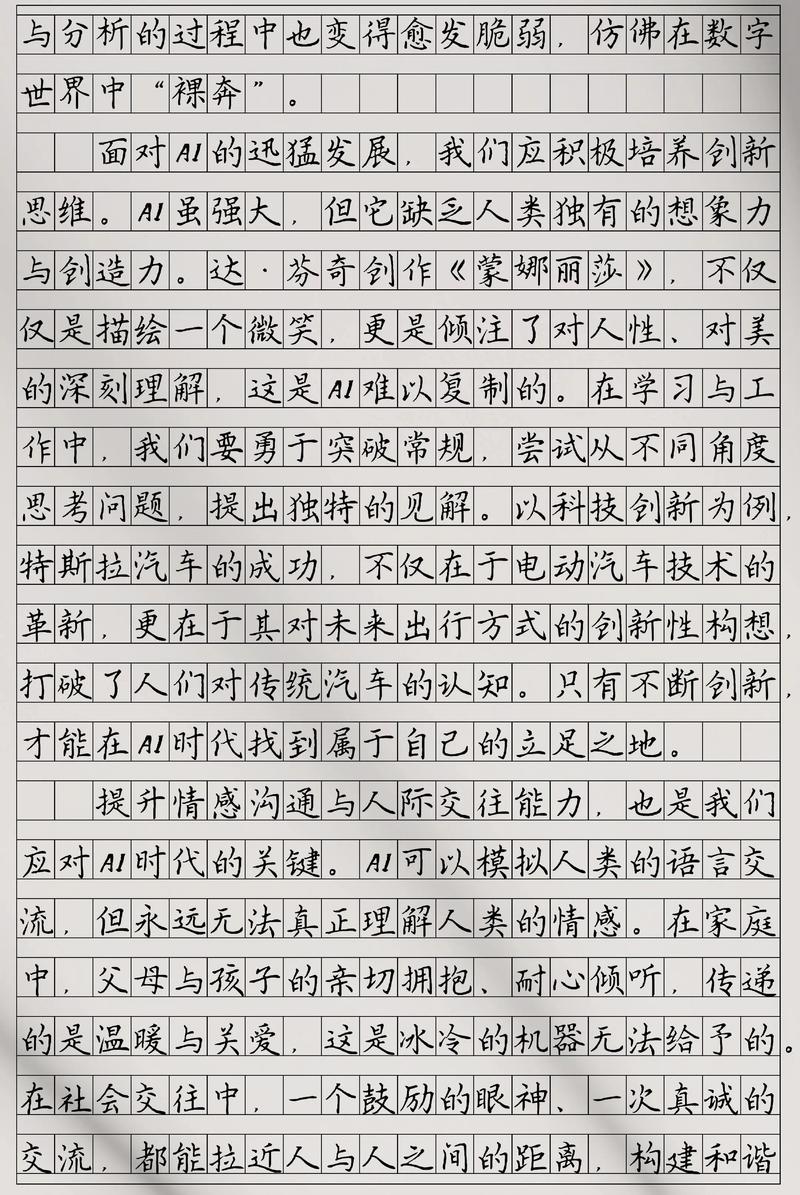 与分析的过程中也变得愈发脆弱，仿佛在数字
世界中“裸奔”。
面对AI的迅猛发展，我们应积极培养创新
思维。AI虽强大，但它缺乏人类独有的想象力
与创造力。达·芬奇创作《蒙娜丽莎》，不仅
仅是描绘一个微笑，更是倾注了对人性、对美
的深刻理解，这是AI难以复制的。在学习与工
作中，我们要勇于突破常规，尝试从不同角度
思考问题，提出独特的见解。以科技创新为例，
特斯拉汽车的成功，不仅在于电动汽车技术的
革新，更在于其对未来出行方式的创新性构想，
打破了人们对传统汽车的认知。只有不断创新，
才能在AI时代找到属于自己的立足之地。
提升情感沟通与人际交往能力，也是我们
应对AI时代的关键。AI可以模拟人类的语言交
流，但永远无法真正理解人类的情感。在家庭
中，父母与孩子的亲切拥抱、耐心倾听，传递
的是温暖与关爱，这是冰冷的机器无法给予的。
在社会交往中，一个鼓励的眼神、一次真诚的
交流，都能拉近人与人之间的距离，构建和谐